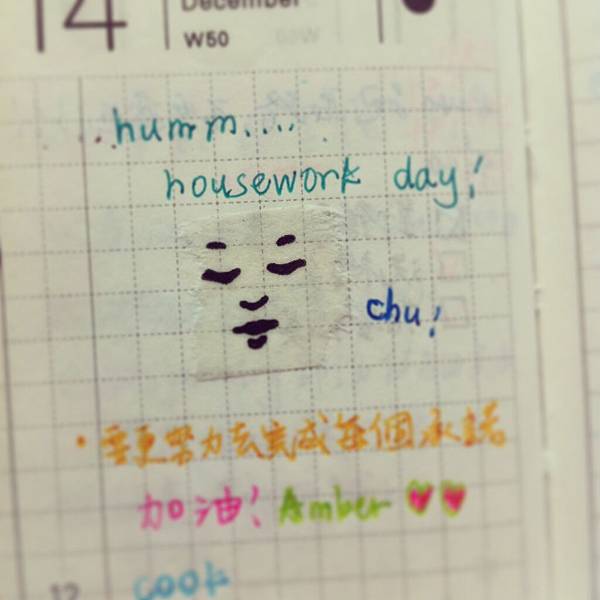 14 December
W50
...humm....
housework day!
chu!
•要更努力去完成每個承諾
加油! Amber
12 cook